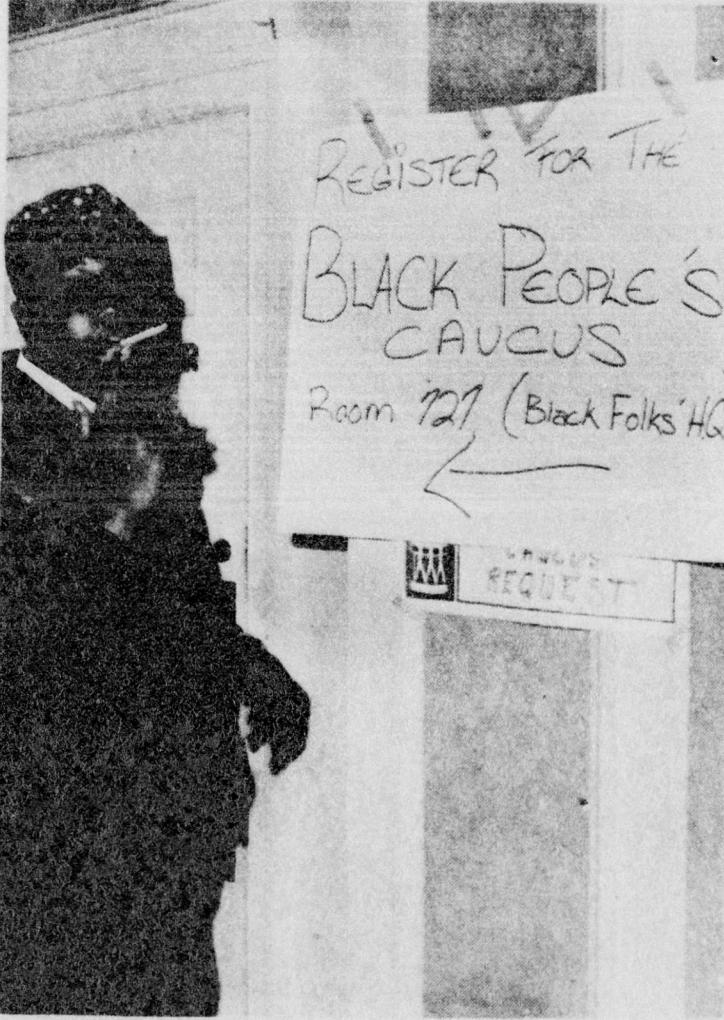 REGISTER FOR THE
BLACK PEOPLE'S
CAUCUS
Room 727 (Black Folks' HQ
CAUCUS
REQUEST